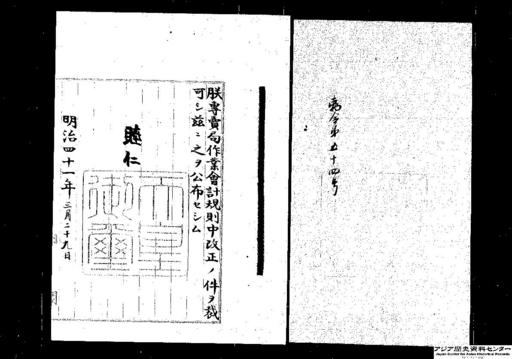 勅令第五十四号
朕專賣局作業會計規則中改正ノ件ヲ裁
可シ茲ニ之ヲ公布セシム
睦仁
天皇
御璽
明治四十一年三月二十九日
アジア歴史資料センター
Japan Center for Asian Historical Records